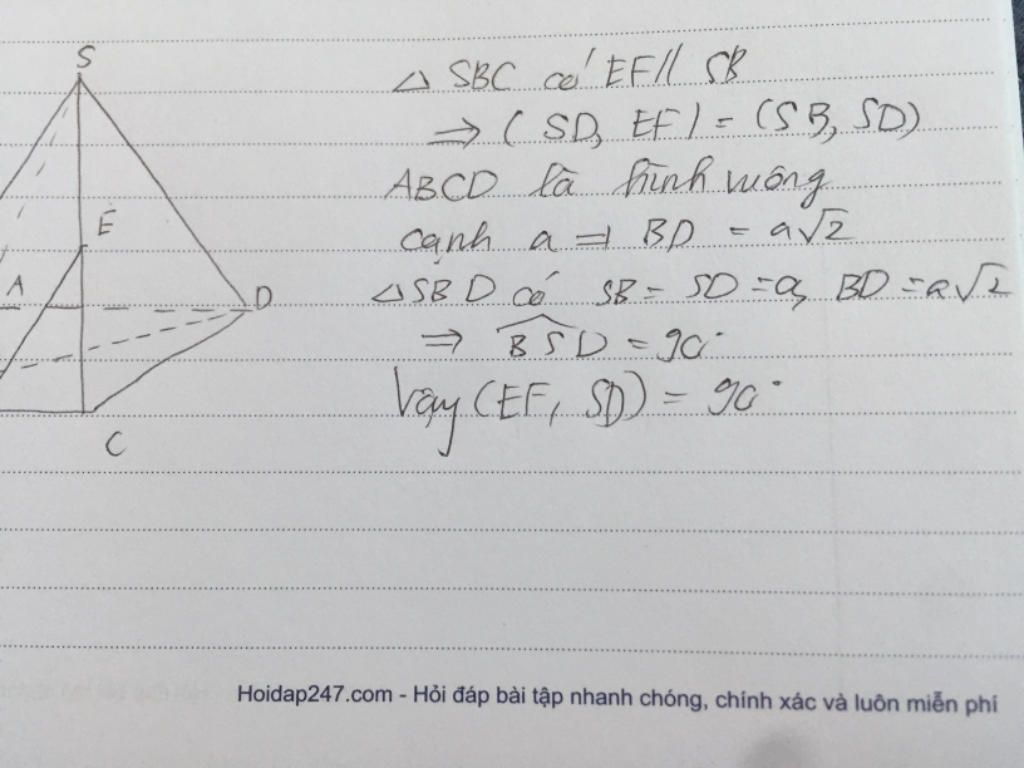 S
E
A
D
C
△ SBC có EF // SB
⇒ (SD, EF) = (SB, SD)
ABCD là hình vuông
cạnh a ⇒ BD = a√2
△SBD có SB = SD = a, BD = a√2
⇒ \widehat{BSD} = 90°
Vậy (EF, SD) = 90°
Hoidap247.com - Hỏi đáp bài tập nhanh chóng, chính xác và luôn miễn phí